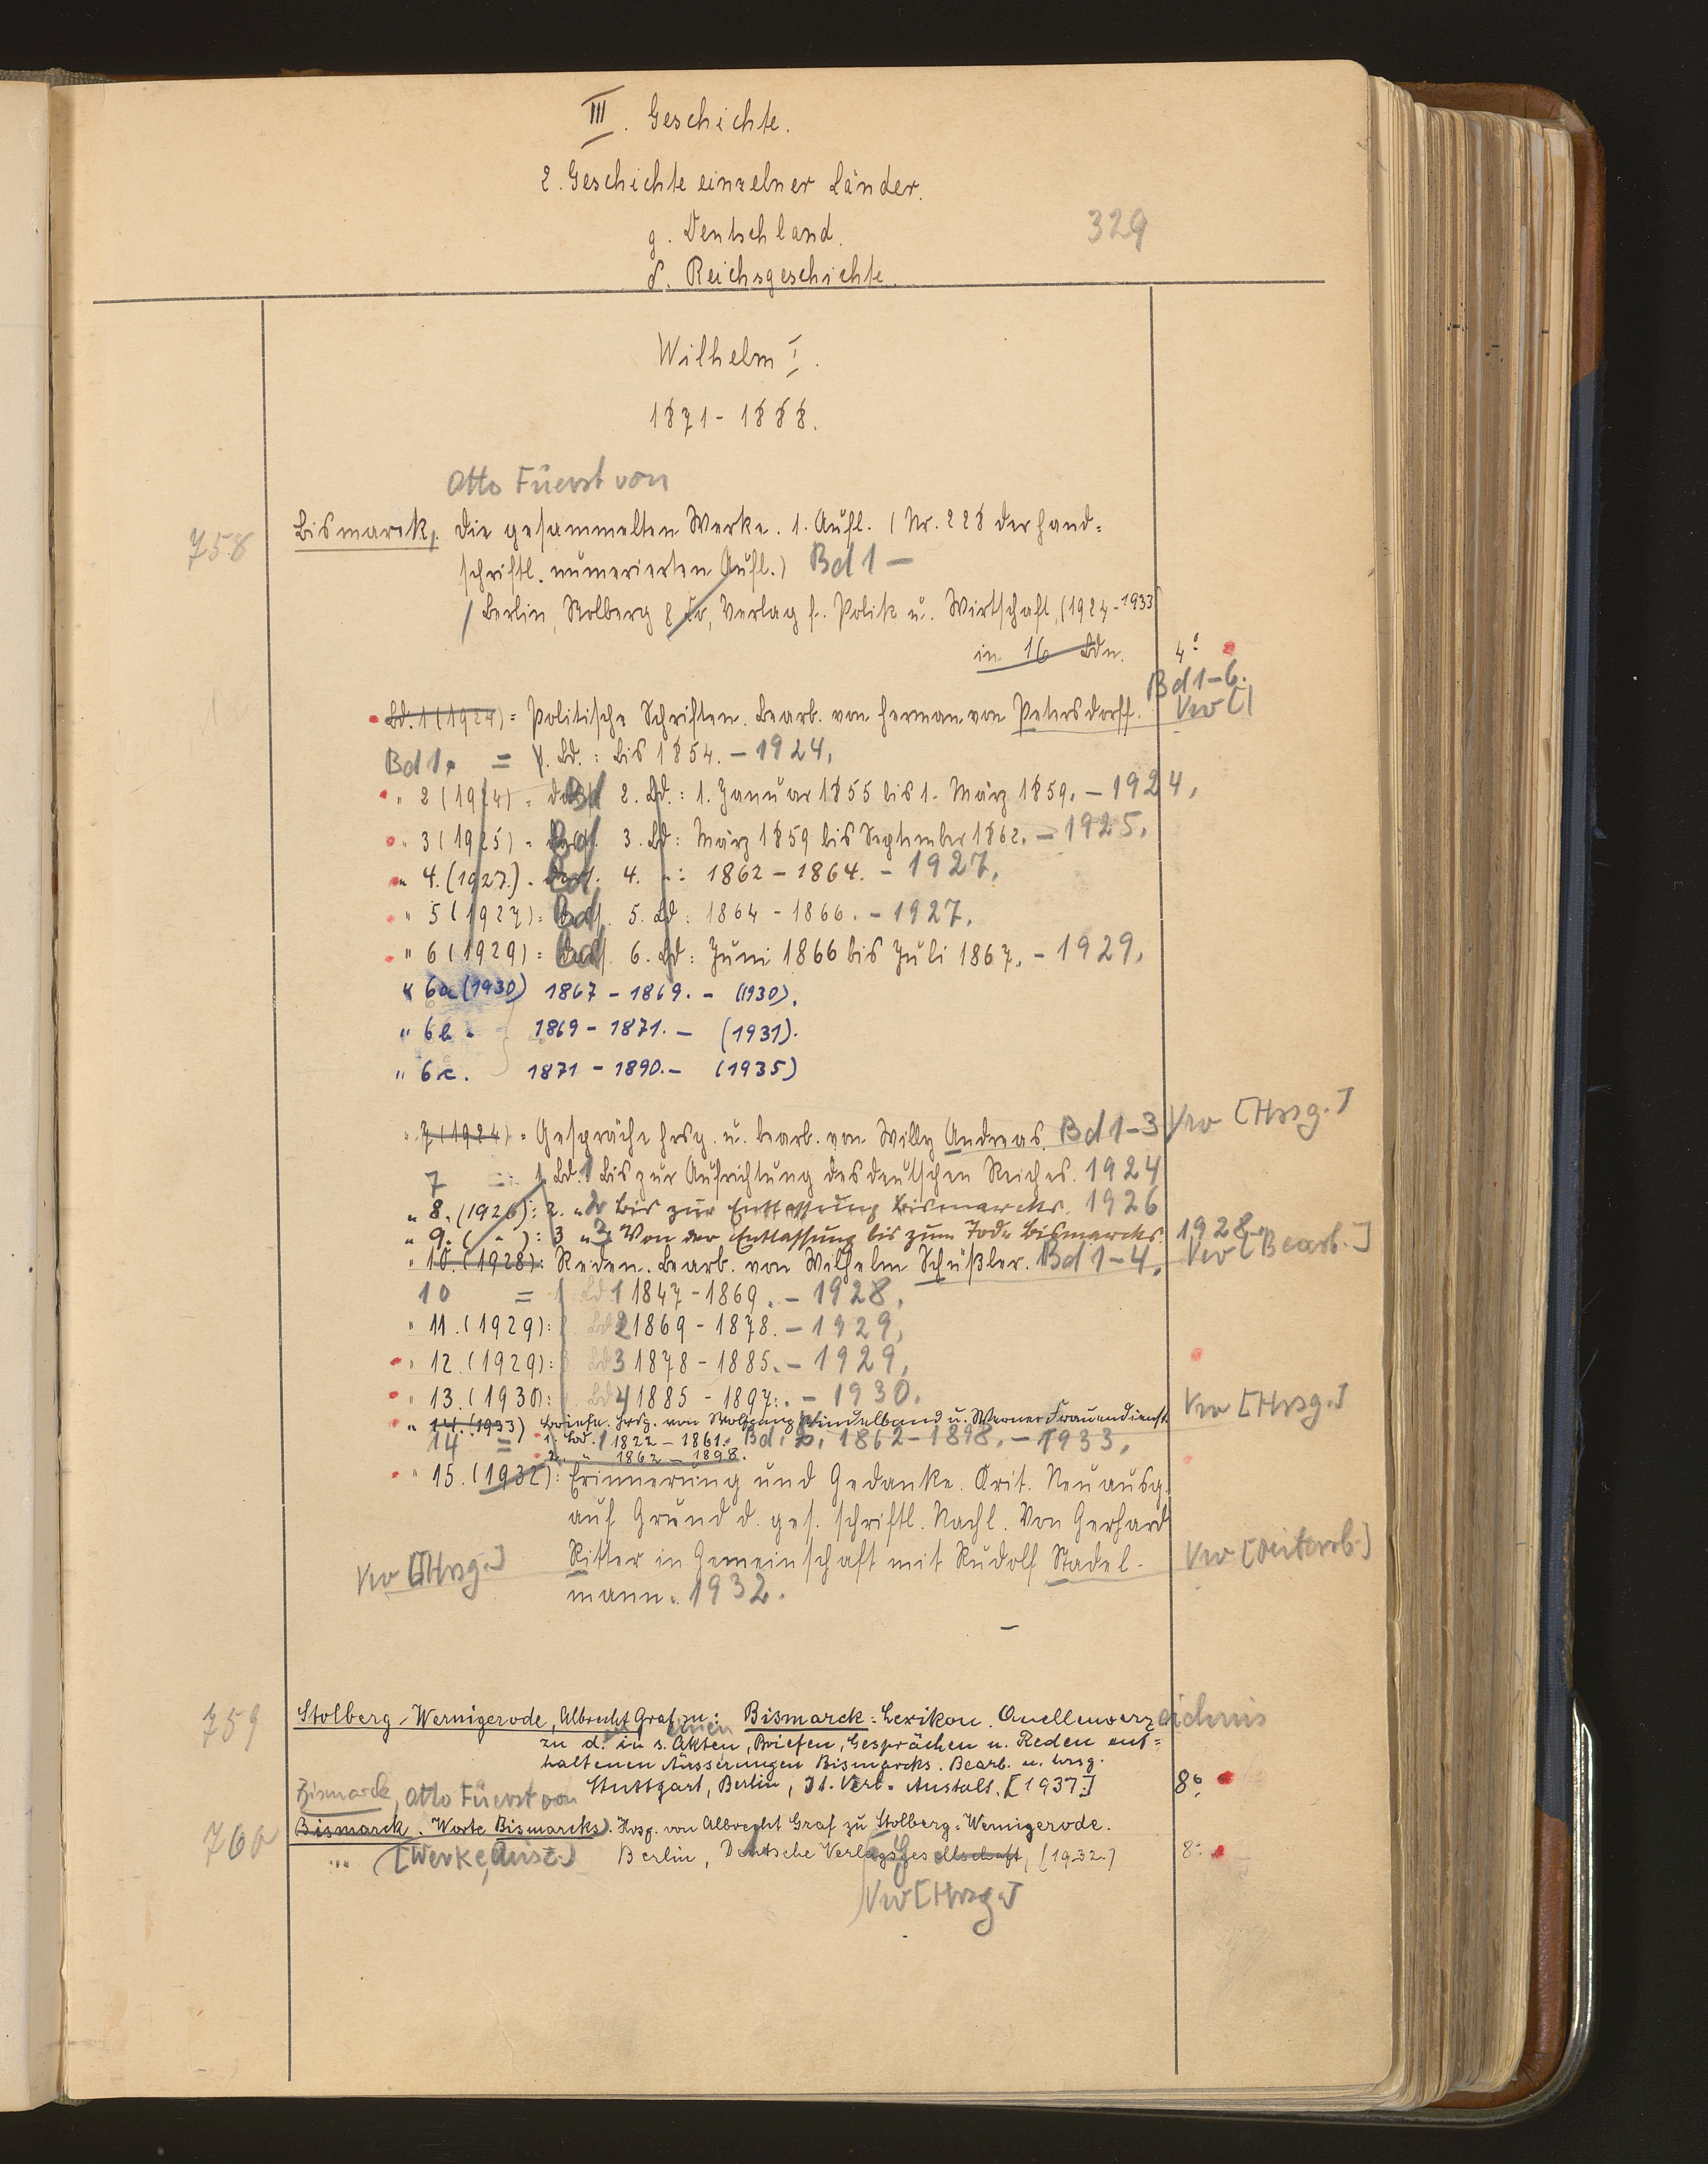 III. Geschichte.
2. Geschichte einzelner Länder.
g. Deutschland.
329
δ. Reichsgeschichte.
Wilhelm I.
1871 - 1888.
Otto Fürst von
758 Bismarck, Die gesammelten Werke. 1. Aufl. (Nr. 228 der hand=
schriftl. numerierten Aufl.) Bd 1 -
Berlin, Stolberg & Co, Verlag f. Politik u. Wirtschaft, (1924-1933
in 16 Bdn. 4°
Bd 1-6.
Bd. 1 (1924) = Politische Schriften. Bearb. von Herman von Petersdorff. Vw [
Bd 1. = 1. Bd.: Bis 1854. - 1924.
" 2 (1924) = Bd 2. Bd.: 1. Januar 1855 bis 1. März 1859. - 1924.
" 3 (1925) = Bd 3. Bd: März 1859 bis September 1862. - 1925.
" 4. (1927.) = Bd 4. ": 1862 - 1864. - 1927.
" 5 (1927) = Bd 5. Bd: 1864 - 1866. - 1927.
" 6 (1929) = Bd 6. Bd: Juni 1866 bis Juli 1867. - 1929.
" 6a (1930) 1867 - 1869. - (1930).
" 6b. 1869 - 1871. - (1931).
" 6c. 1871 - 1890. - (1935)
" 7 (1924) = Gespräche hrsg. u. bearb. von Willy Andreas. Bd 1-3 Vw [Hrsg.]
7 = 1. Bd. 1 Bis zur Aufrichtung des deutschen Reiches. 1924
" 8. (1926): 2. " 2 Bis zur Entlassung Bismarcks. 1926
" 9. ( " ): 3 " 3 Von der Entlassung bis zum Tode Bismarcks. 1928.
" 10. (1928): Reden. Bearb. von Wilhelm Schüßler. Bd 1-4. Vw [Bearb.]
10 = 1 Bd 1 1847 - 1869. - 1928.
" 11. (1929): Bd 2 1869 - 1878. - 1929.
" 12. (1929): Bd 3 1878 - 1885. - 1929.
" 13. (1930): Bd 4 1885 - 1897. - 1930.
" 14. (1933) Briefe. Hrsg. von Wolfgang Windelband u. Werner Frauendienst. Vw [Hrsg.]
14 = 1. Bd. 1 1822 - 1861. Bd. 2. 1862-1898. - 1933.
2. " 1862 - 1898.
" 15. (1932): Erinnerung und Gedanke. Krit. Neuausg.
auf Grund d. ges. schriftl. Nachl. Von Gerhard
Vw [Hrsg.] Ritter in Gemeinschaft mit Rudolf Stadel- Vw [Mitarb.]
mann. 1932.
759 Stolberg-Wernigerode, Albrecht Graf zu: Bismarck=Lexikon. Quellenverzeichnis
zu d. in s. Akten, Briefen, Gesprächen u. Reden ent=
haltenen Äusserungen Bismarcks. Bearb. u. hrsg.
Stuttgart, Berlin, Dt. Verl.-Anstalt. [1937.] 8°
Bismarck, Otto Fürst von
760 Bismarck. Worte Bismarcks. Hrsg. von Albrecht Graf zu Stolberg-Wernigerode.
[Werke, Ausz.] Berlin, Deutsche Verlagsgesellschaft, (1932.) 8°
Vw [Hrsg.]